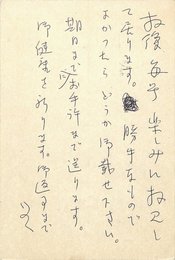 後毎号楽しみに拝見し
て居ります。勝手なもので
よかつたらどうか御載せ下さい。
期日までお手許まで送ります。
御健筆を祈ります。御返事まで